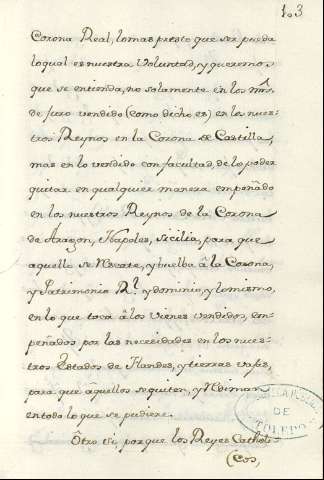 103
Corona Real, lo mas presto que ser pueda
lo qual es nuestra Voluntad, y queremos
que se entienda, no solamente en los mrs.
de juro vendido (como dicho es) en los nues-
tros Reynos en la Corona de Castilla,
mas en lo vendido con facultad, de lo poder
quitar en qualquier manera empeñado
en los nuestros Reynos de la Corona
de Aragon, Napoles, Sicilia, para que
aquello se Rescate, y buelba â la Corona,
y Patrimonio Rl. y dominio, y lo mismo,
en lo que toca â los vienes vendidos, em-
peñados por las necesidades en los nues-
tros Estados de Flandes, y tierras vaxas,
para que âquellos se quiten, y Rediman
en todo lo que se pudiere.
Ôtro si, porque los Reyes Catholi-
cos,
DE
TOLEDO